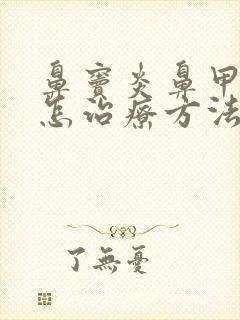 鼻竇炎鼻甲
怎治療方法
了無憂